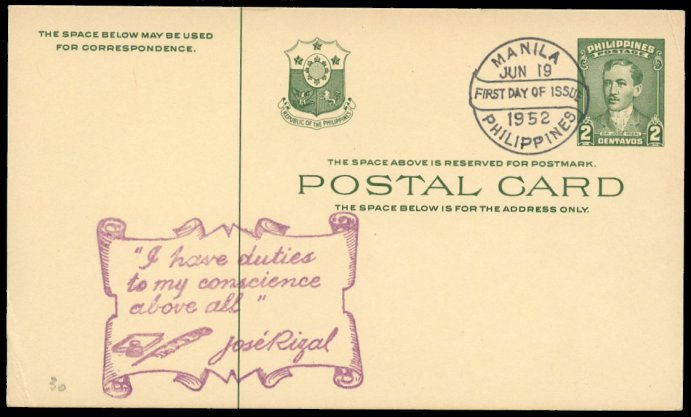 THE SPACE BELOW MAY BE USED
FOR CORRESPONDENCE.
REPUBLIC OF THE PHILIPPINES
MANILA
JUN 19
FIRST DAY OF ISSUE
1952
PHILIPPINES
PHILIPPINES
POSTAGE
DR. JOSE RIZAL
2 CENTAVOS 2
THE SPACE ABOVE IS RESERVED FOR POSTMARK.
POSTAL CARD
THE SPACE BELOW IS FOR THE ADDRESS ONLY.
"I have duties
to my conscience
above all"
José Rizal
30